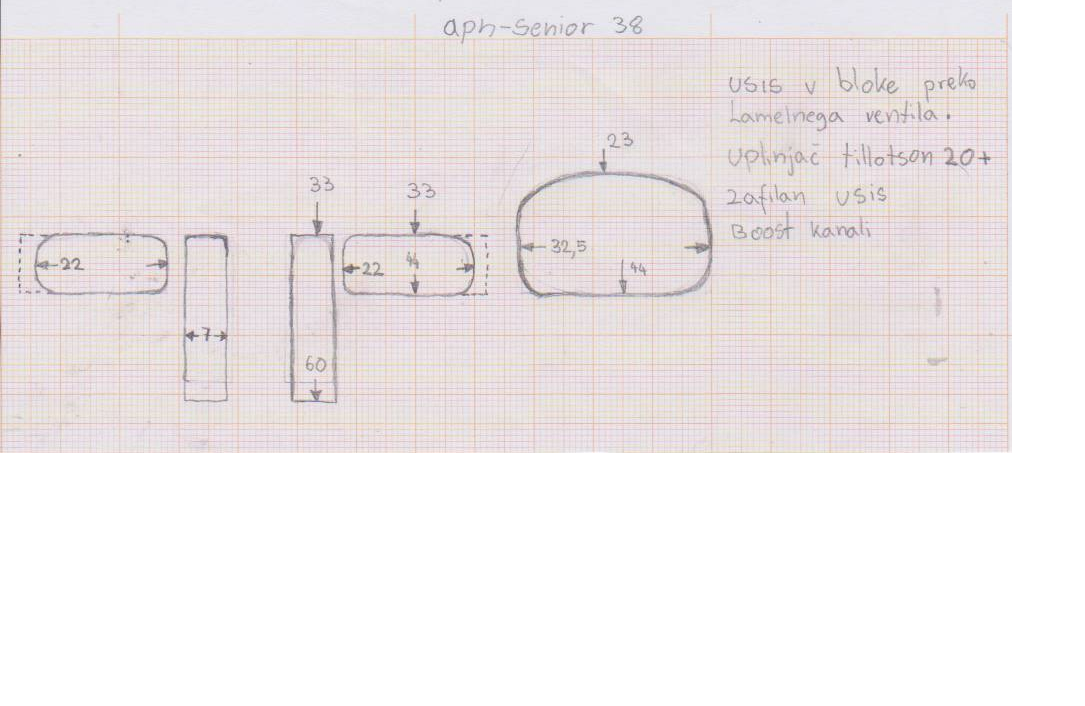 apn-Senior 38
usis v bloke preko
Lamelnega ventila.
uplinjač tillotson 20+
zafilan usis
Boost kanali
23
33
33
32,5
22
22
44
44
7
60